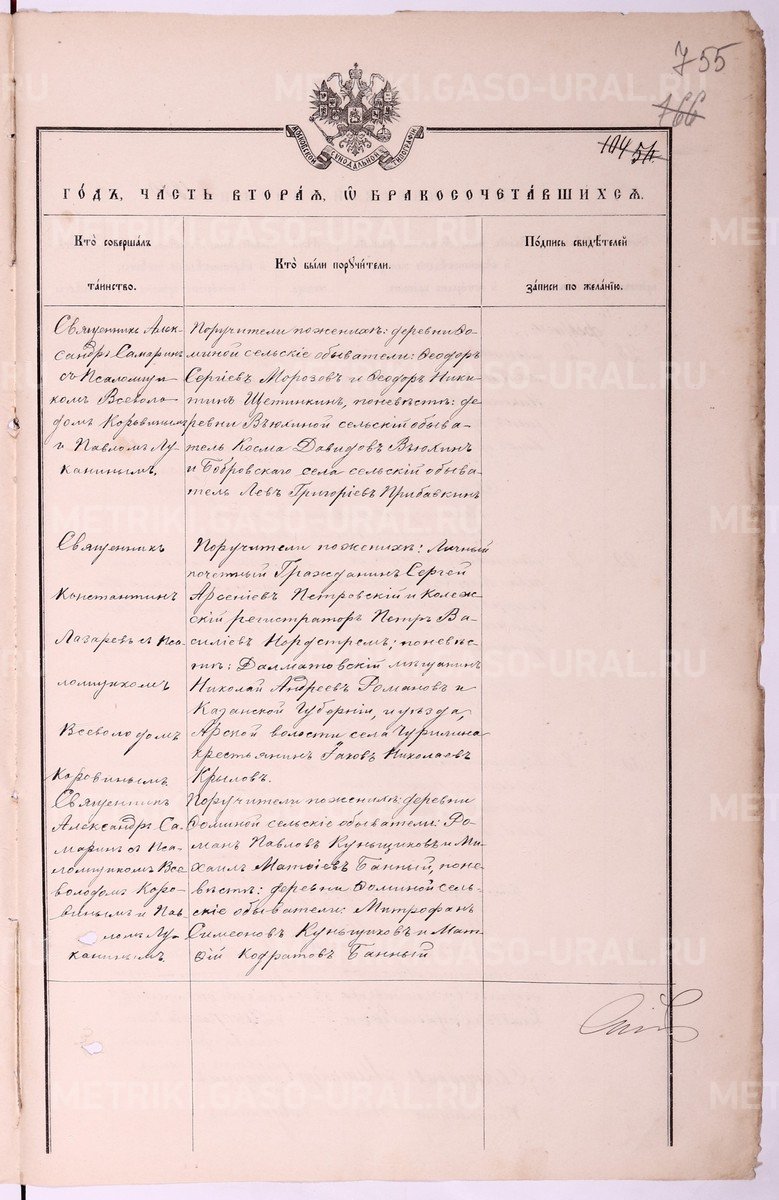 755
766
104 54.
МОСКОВСКОЙ СѴНОДАЛЬНОЙ ТИПОГРАФІИ
ГОДЪ, ЧАСТЬ ВТОРАЯ, Ѡ БРАКОСОЧЕТАВШИХСЯ.
Кто совершалъ
таинство.
Кто были поручители.
Подпись свидѣтелей
записи по желанію.
Священникъ Алек-
сандръ Самаринъ
съ Псаломщи-
комъ Всеволо-
домъ Коровинымъ
и Павломъ Лу-
канинымъ.
Поручители по женихѣ: деревни Ѳо-
миной сельскіе обыватели: Ѳеодоръ
Сергіевъ Морозовъ и Ѳеодоръ Ники-
тинъ Щетинкинъ, по невѣстѣ: де-
ревни Вьюхиной сельскій обыва-
тель Косма Давидовъ Вьюхинъ
и Бобровскаго села сельскій обыва-
тель Левъ Григоріевъ Прибавкинъ
Священникъ
Константинъ
Лазаревъ съ Пса-
ломщикомъ
Всеволодомъ
Коровинымъ.
Поручители по женихѣ: Личный
почетный Гражданинъ Сергей
Арсеніевъ Петровскій и Колеж-
скій регистраторъ Петръ Ва-
силіевъ Нордстремъ; по невѣс-
тѣ: Далматовскій мѣщанинъ
Николай Андреевъ Романовъ и
Казанской Губерніи, и уѣзда,
Арской волости села Чурилина
крестьянинъ Іаковъ Николаевъ
Крыловъ.
Священникъ
Александръ Са-
маринъ съ Пса-
ломщикомъ Все-
володомъ Коро-
винымъ и Пав-
ломъ Лу-
канинымъ.
Поручители по женихѣ: деревни
Ѳоминой сельскіе обыватели: Ро-
манъ Павловъ Куньщиковъ и Ми-
хаилъ Матѳіевъ Банный, по не-
вѣстѣ: деревни Ѳоминой сель-
скіе обыватели: Митрофанъ
Симеоновъ Куньщиковъ и Мат-
ѳій Кодратовъ Банный
METRIKI.GASO-URAL.RU